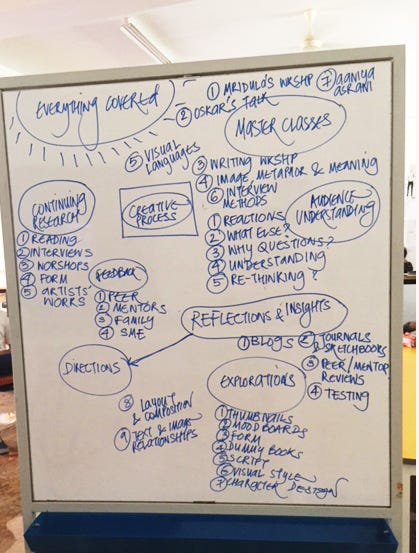 EVERYTHING COVERED
① MRIDULO'S WKSHP
⑦ AANIYA
ASRANI
② OSKAR'S TALK
MASTER CLASSES
⑤ VISUAL
LANGUAGES
③ WRITING WKSHP
④ IMAGE, METAPHOR & MEANING
⑥ INTERVIEW
METHODS
CONTINUING
RESEARCH
① READING
② INTERVIEWS
③ WORSHOPS
④ FORM
⑤ ARTISTS'
WORKS
CREATIVE
PROCESS
AUDIENCE
UNDERSTANDING
① REACTIONS
② WHAT ELSE?
③ WHY QUESTIONS?
④ UNDERSTANDING
⑤ RE-THINKING?
FEEDBACK
① PEER
② MENTORS
③ FAMILY
④ SME
REFLECTIONS & INSIGHTS
① BLOGS
② JOURNALS
& SKETCHBOOKS
③ PEER/MENTOR
REVIEWS
④ TESTING
DIRECTIONS
EXPLORATIONS
① THUMBNAILS
② MOOD BOARDS
③ FORM
④ DUMMY BOOKS
⑤ SCRIPT
⑥ VISUAL STYLE
⑦ CHARACTER DESIGN
⑧ LAYOUT
& COMPOSITION
⑨ TEXT & IMAGE
RELATIONSHIPS